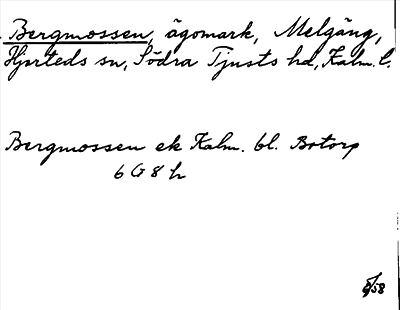 Bergmossen, ägomark, Melgäng,
Hjorteds sn, Södra Tjusts hd, Kalm. l.
Bergmossen ek Kalm. bl. Botorp
6 G 8 h